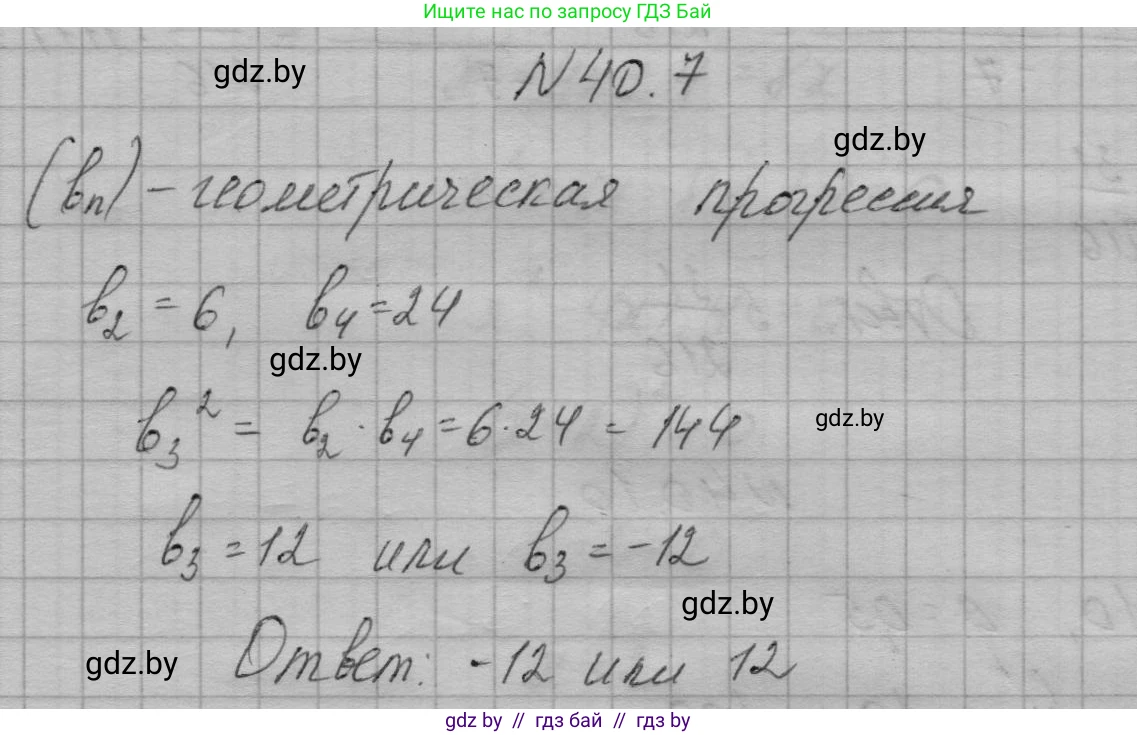 Ищите нас по запросу ГДЗ Бай
gdz.by
N 40.7
gdz.by
(bₙ) - геометрическая прогрессия
b₂ = 6, b₄ = 24
gdz.by
b₃² = b₂ · b₄ = 6 · 24 = 144
gdz.by
b₃ = 12 или b₃ = -12
gdz.by
Ответ: -12 или 12
gdz.by
gdz by // гдз бай // гдз by